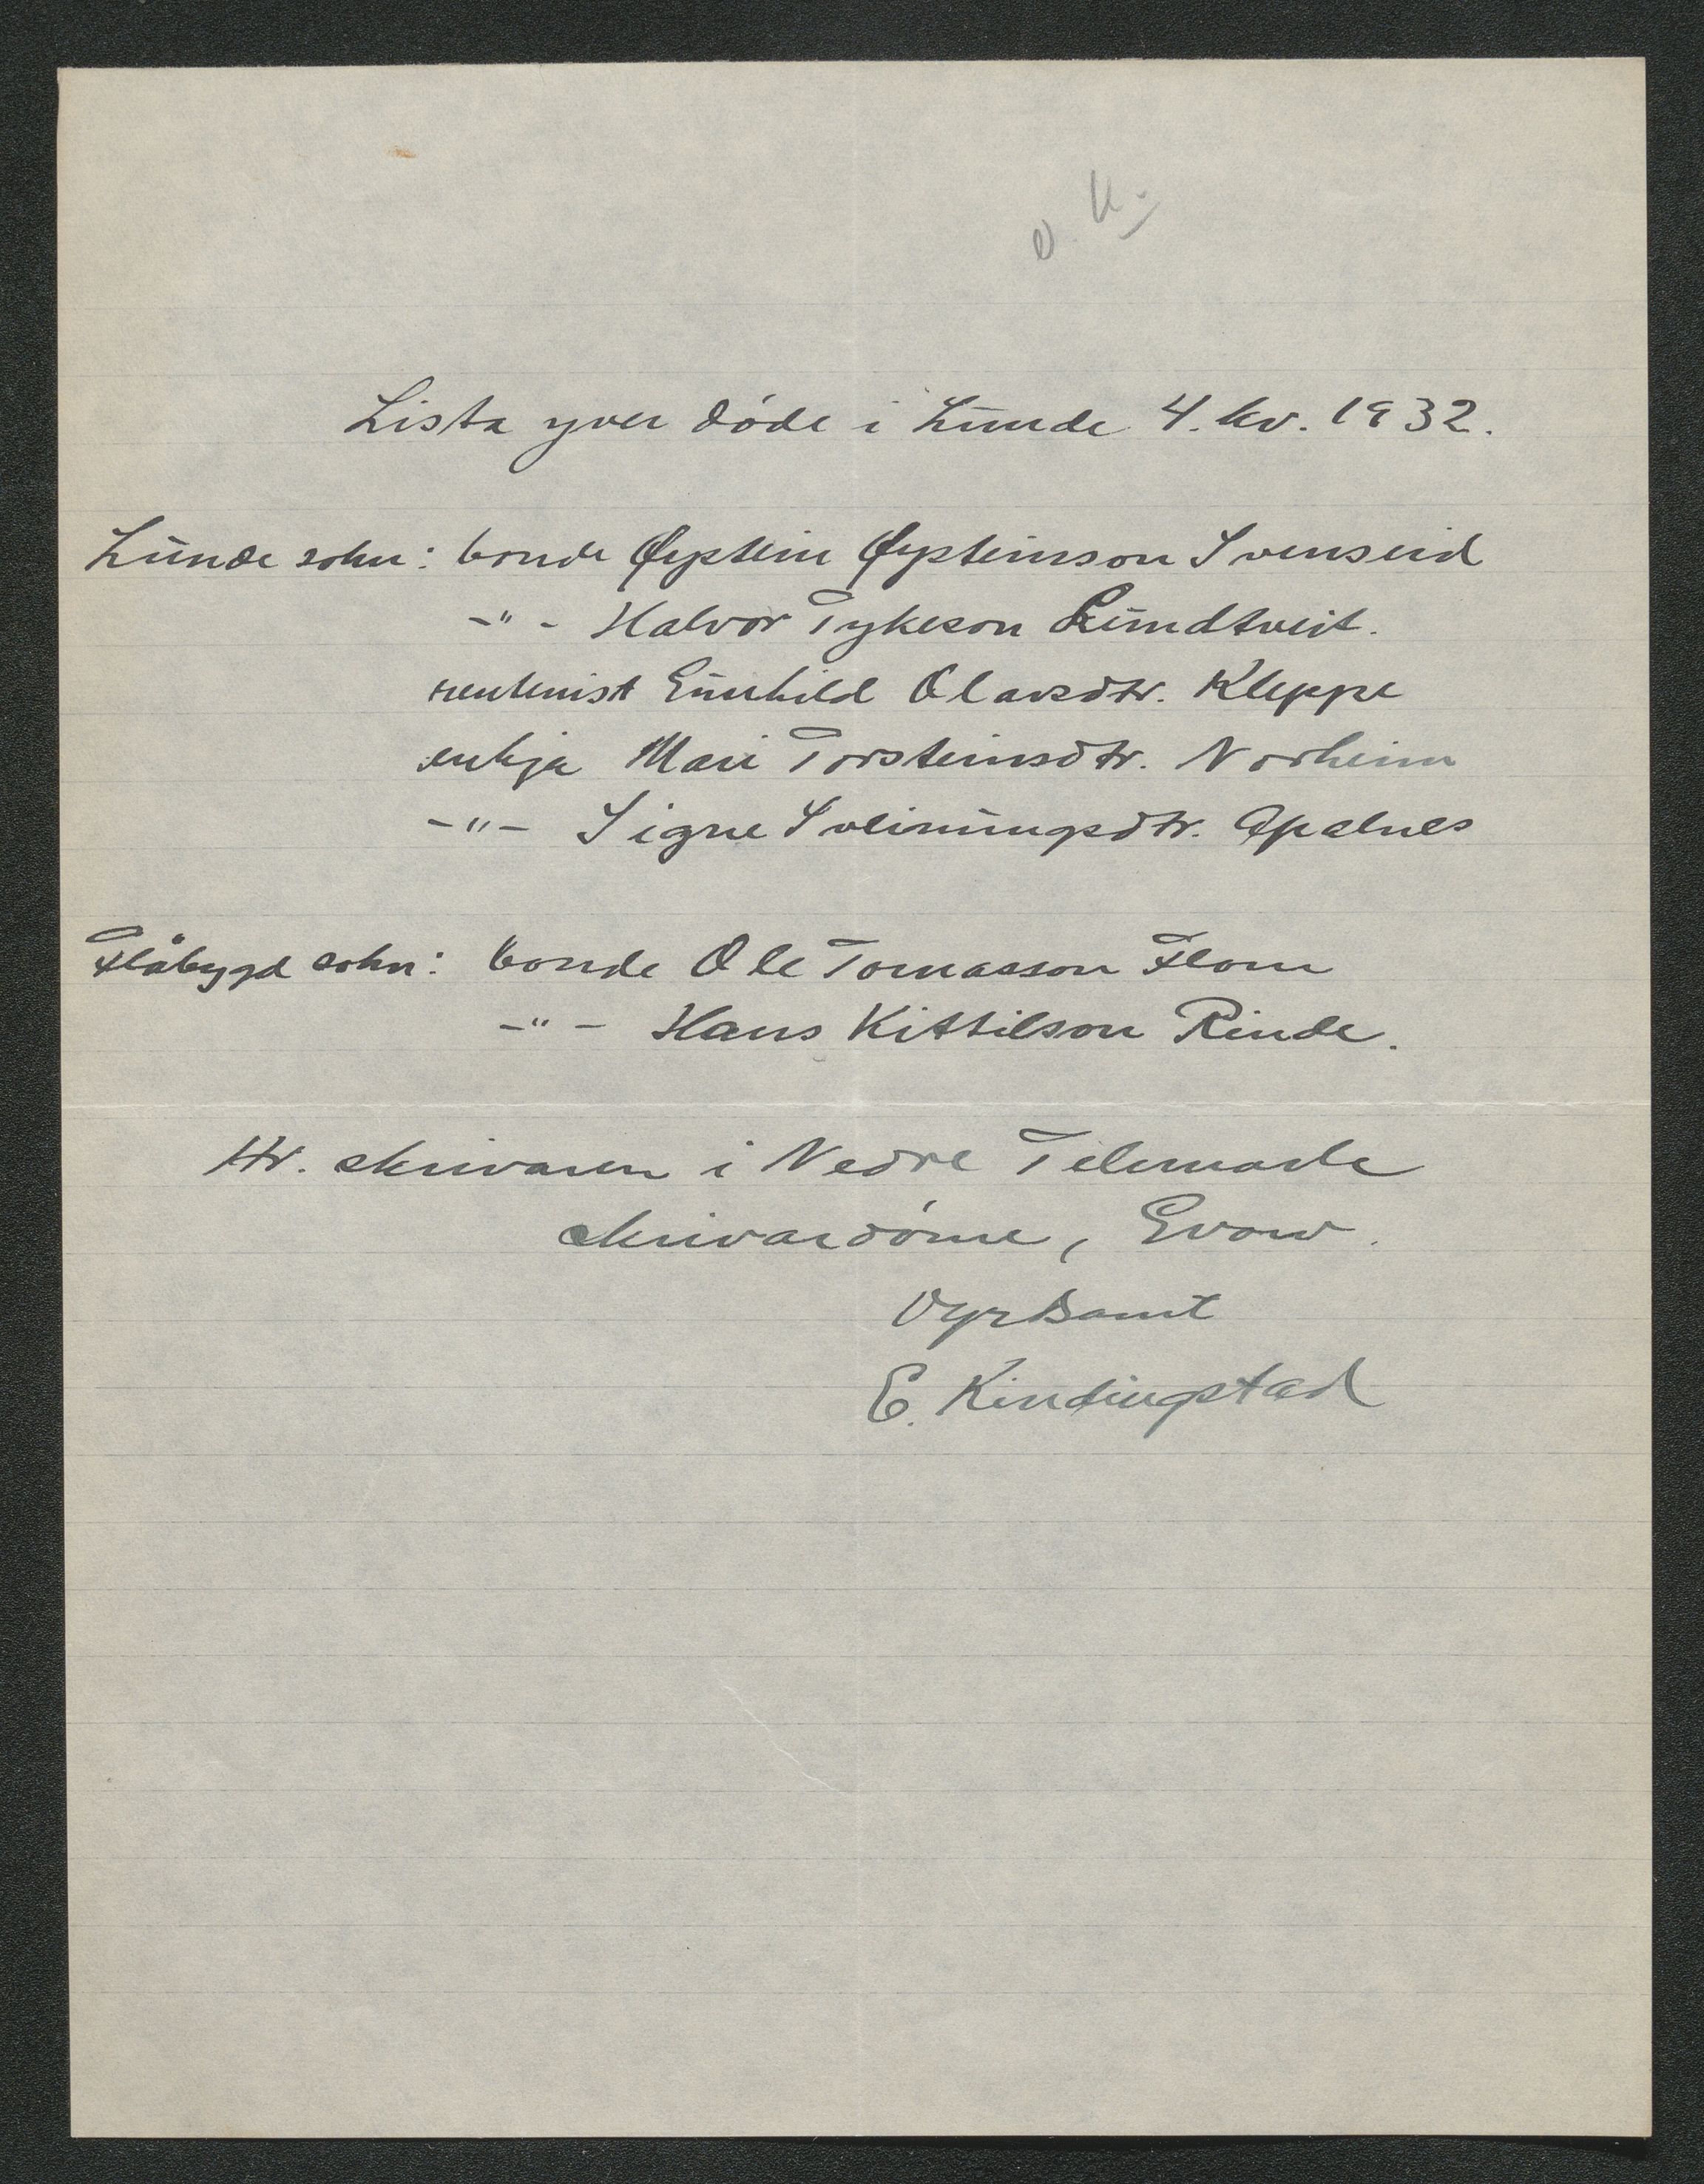 o. k.
Lista yver døde i Lunde 4. kv. 1932.
Lunde sokn: bonde Øystein Øysteinson Svenseid
-"- Halvor Tykeson Lundtveit.
rentenist Gunhild Olavsdtr. Kleppe
enkja Mari Torsteinsdtr. Norheim
-"- Signe Sveinungsdtr. Apalnes
Flåbygd sokn: bonde Ole Tomasson Flom
-"- Hans Kittilson Rinde.
Hr. skrivaren i Nedre Telemark
skrivardøme, Gvarv.
Vyrdsamt
E. Kindingstad